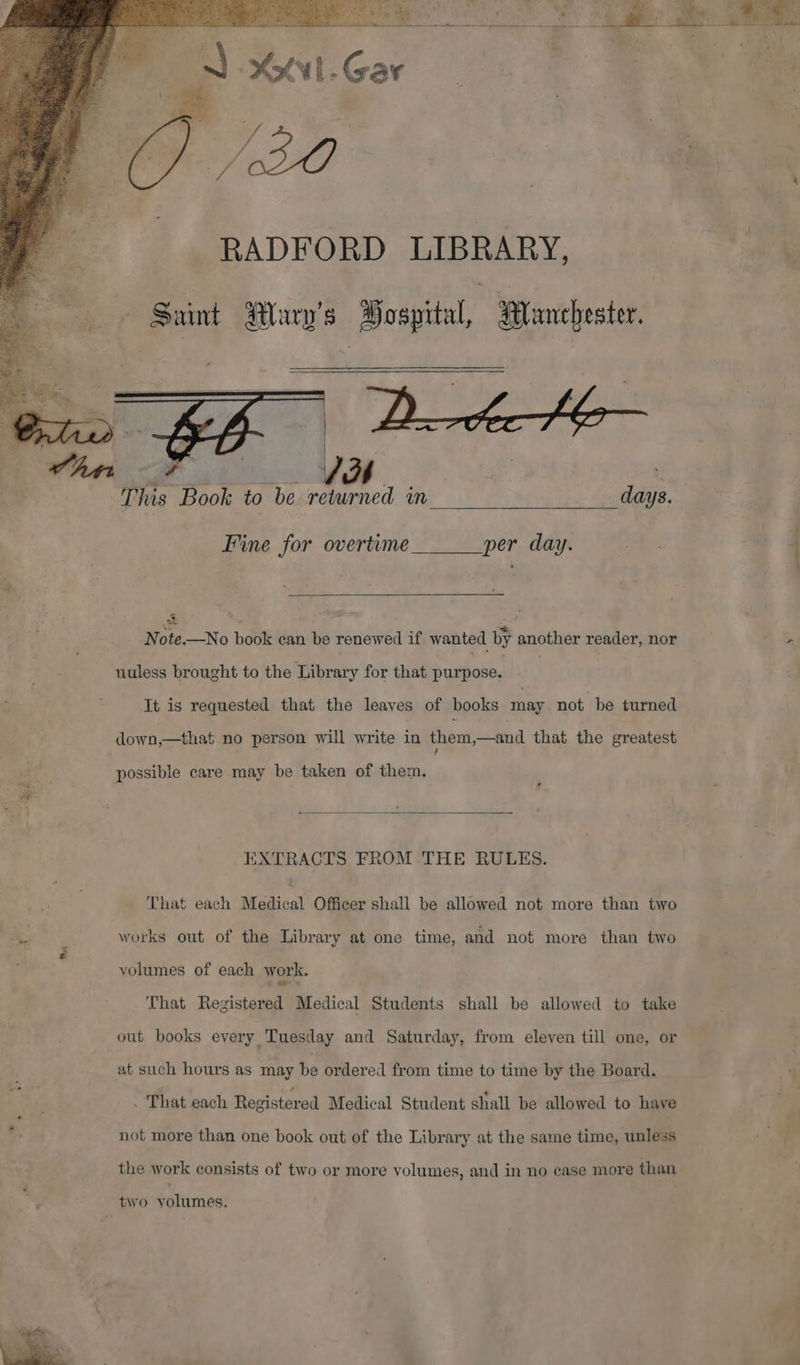 J. xxvi. Gar
O /30
RADFORD LIBRARY,
Saint Mary's Hospital, Manchester.
This Book to be returned in days.
Fine for overtime per day.
Note.—No book can be renewed if wanted by another reader, nor
uuless brought to the Library for that purpose.
It is requested that the leaves of books may not be turned
down,—that no person will write in them,—and that the greatest
possible care may be taken of them.
EXTRACTS FROM THE RULES.
That each Medical Officer shall be allowed not more than two
works out of the Library at one time, and not more than two
volumes of each work.
That Registered Medical Students shall be allowed to take
out books every Tuesday and Saturday, from eleven till one, or
at such hours as may be ordered from time to time by the Board.
That each Registered Medical Student shall be allowed to have
not more than one book out of the Library at the same time, unless
the work consists of two or more volumes, and in no case more than
two volumes.